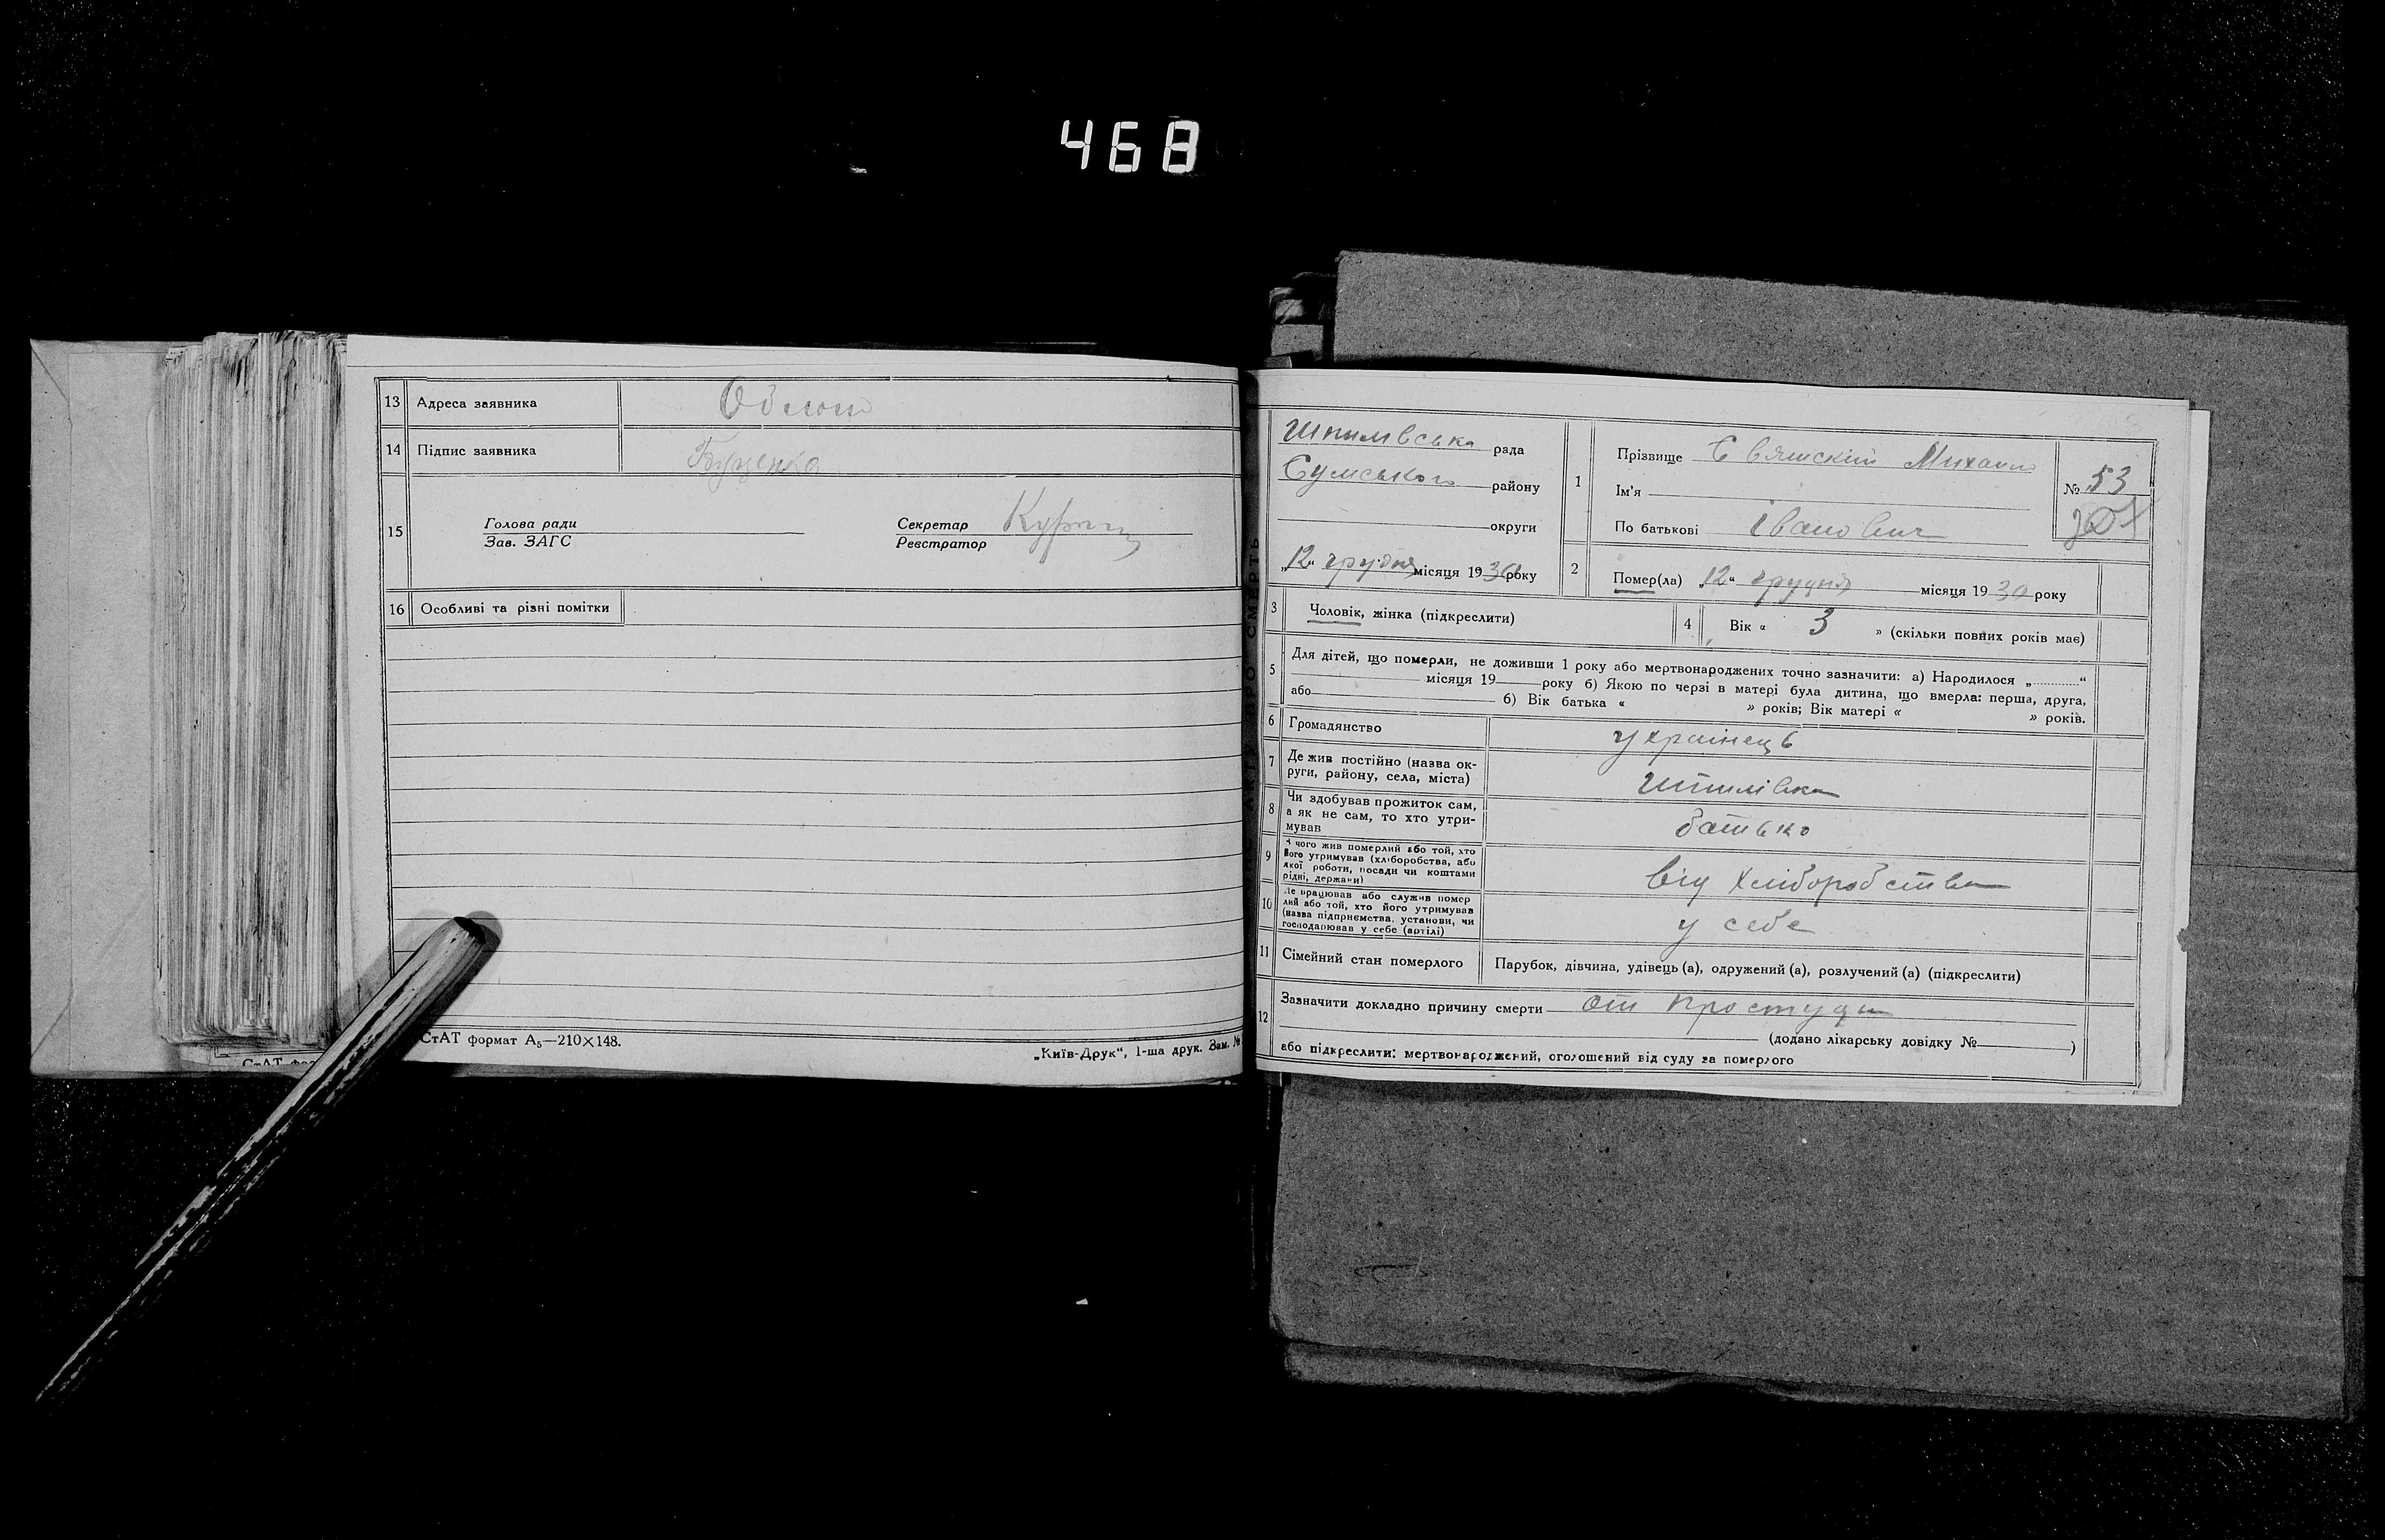 468
13 Адреса заявника
14 Підпис заявника Буценко
15 Голова ради
Зав. ЗАГС
Секретар
Реєстратор
16 Особливі та різні помітки
СтАТ формат А₅—210×148.
„Київ-Друк“, 1-ша друк. Зам. №
Шпилівська рада
Сумського району
округи
„12“ грудня місяця 1930 року
1 Прізвище Євяшский Михаил
Ім'я
По батькові Іванович
№ 53
2 Помер(ла) „12“ грудня місяця 1930 року
3 Чоловік, жінка (підкреслити)
4 Вік « 3 » (скільки повних років має)
5 Для дітей, що померли, не доживши 1 року або мертвонароджених точно зазначити: а) Народилося „............“
місяця 19 року б) Якою по черзі в матері була дитина, що вмерла: перша, друга,
або 6) Вік батька « » років; Вік матері « » років.
6 Громадянство українець
7 Де жив постійно (назва ок-
руги, району, села, міста) Шпилівка
8 Чи здобував прожиток сам,
а як не сам, то хто утри-
мував батько
9 З чого жив померлий або той, хто
його утримував (хліборобства, або
якої роботи, посади чи коштами
рідні, держави) від хліборобства
10 Де працював або служив помер
лий або той, хто його утримував
(назва підприємства, установи, чи
господарював у себе (артілі) у себе
11 Сімейний стан померлого Парубок, дівчина, удівець (а), одружений (а), розлучений (а) (підкреслити)
12 Зазначити докладно причину смерти от простуди
(додано лікарську довідку № )
або підкреслити: мертвонароджений, оголошений від суду за померлого